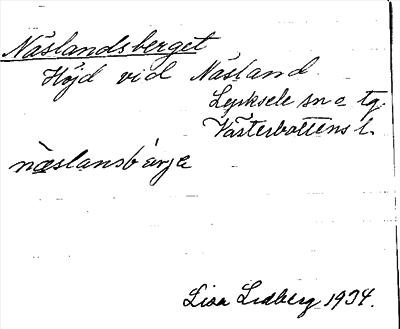 Näslandsberget
Höjd vid Näsland.
Lycksele sn o tg.
Västerbottens l.
næslansbärje
Lisa Lidberg 1934.